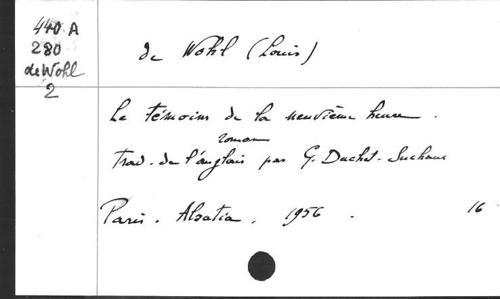 440 A
280
de Wohl
2
de Wohl (Louis)
Le témoins de la neuvième heure.
roman
Trad. de l'anglais par G. Duchet-Suchaux
Paris. Alsatia. 1956. 16